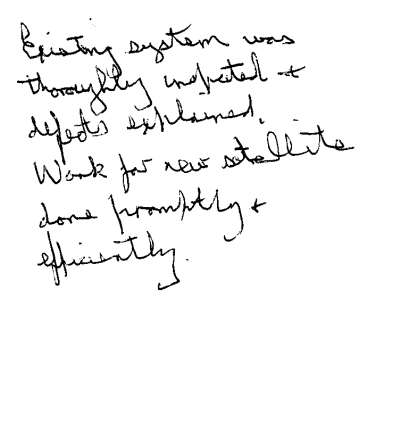 Existing system was
thoroughly inspected +
defects explained.
Work for new satellite
done promptly +
efficiently.